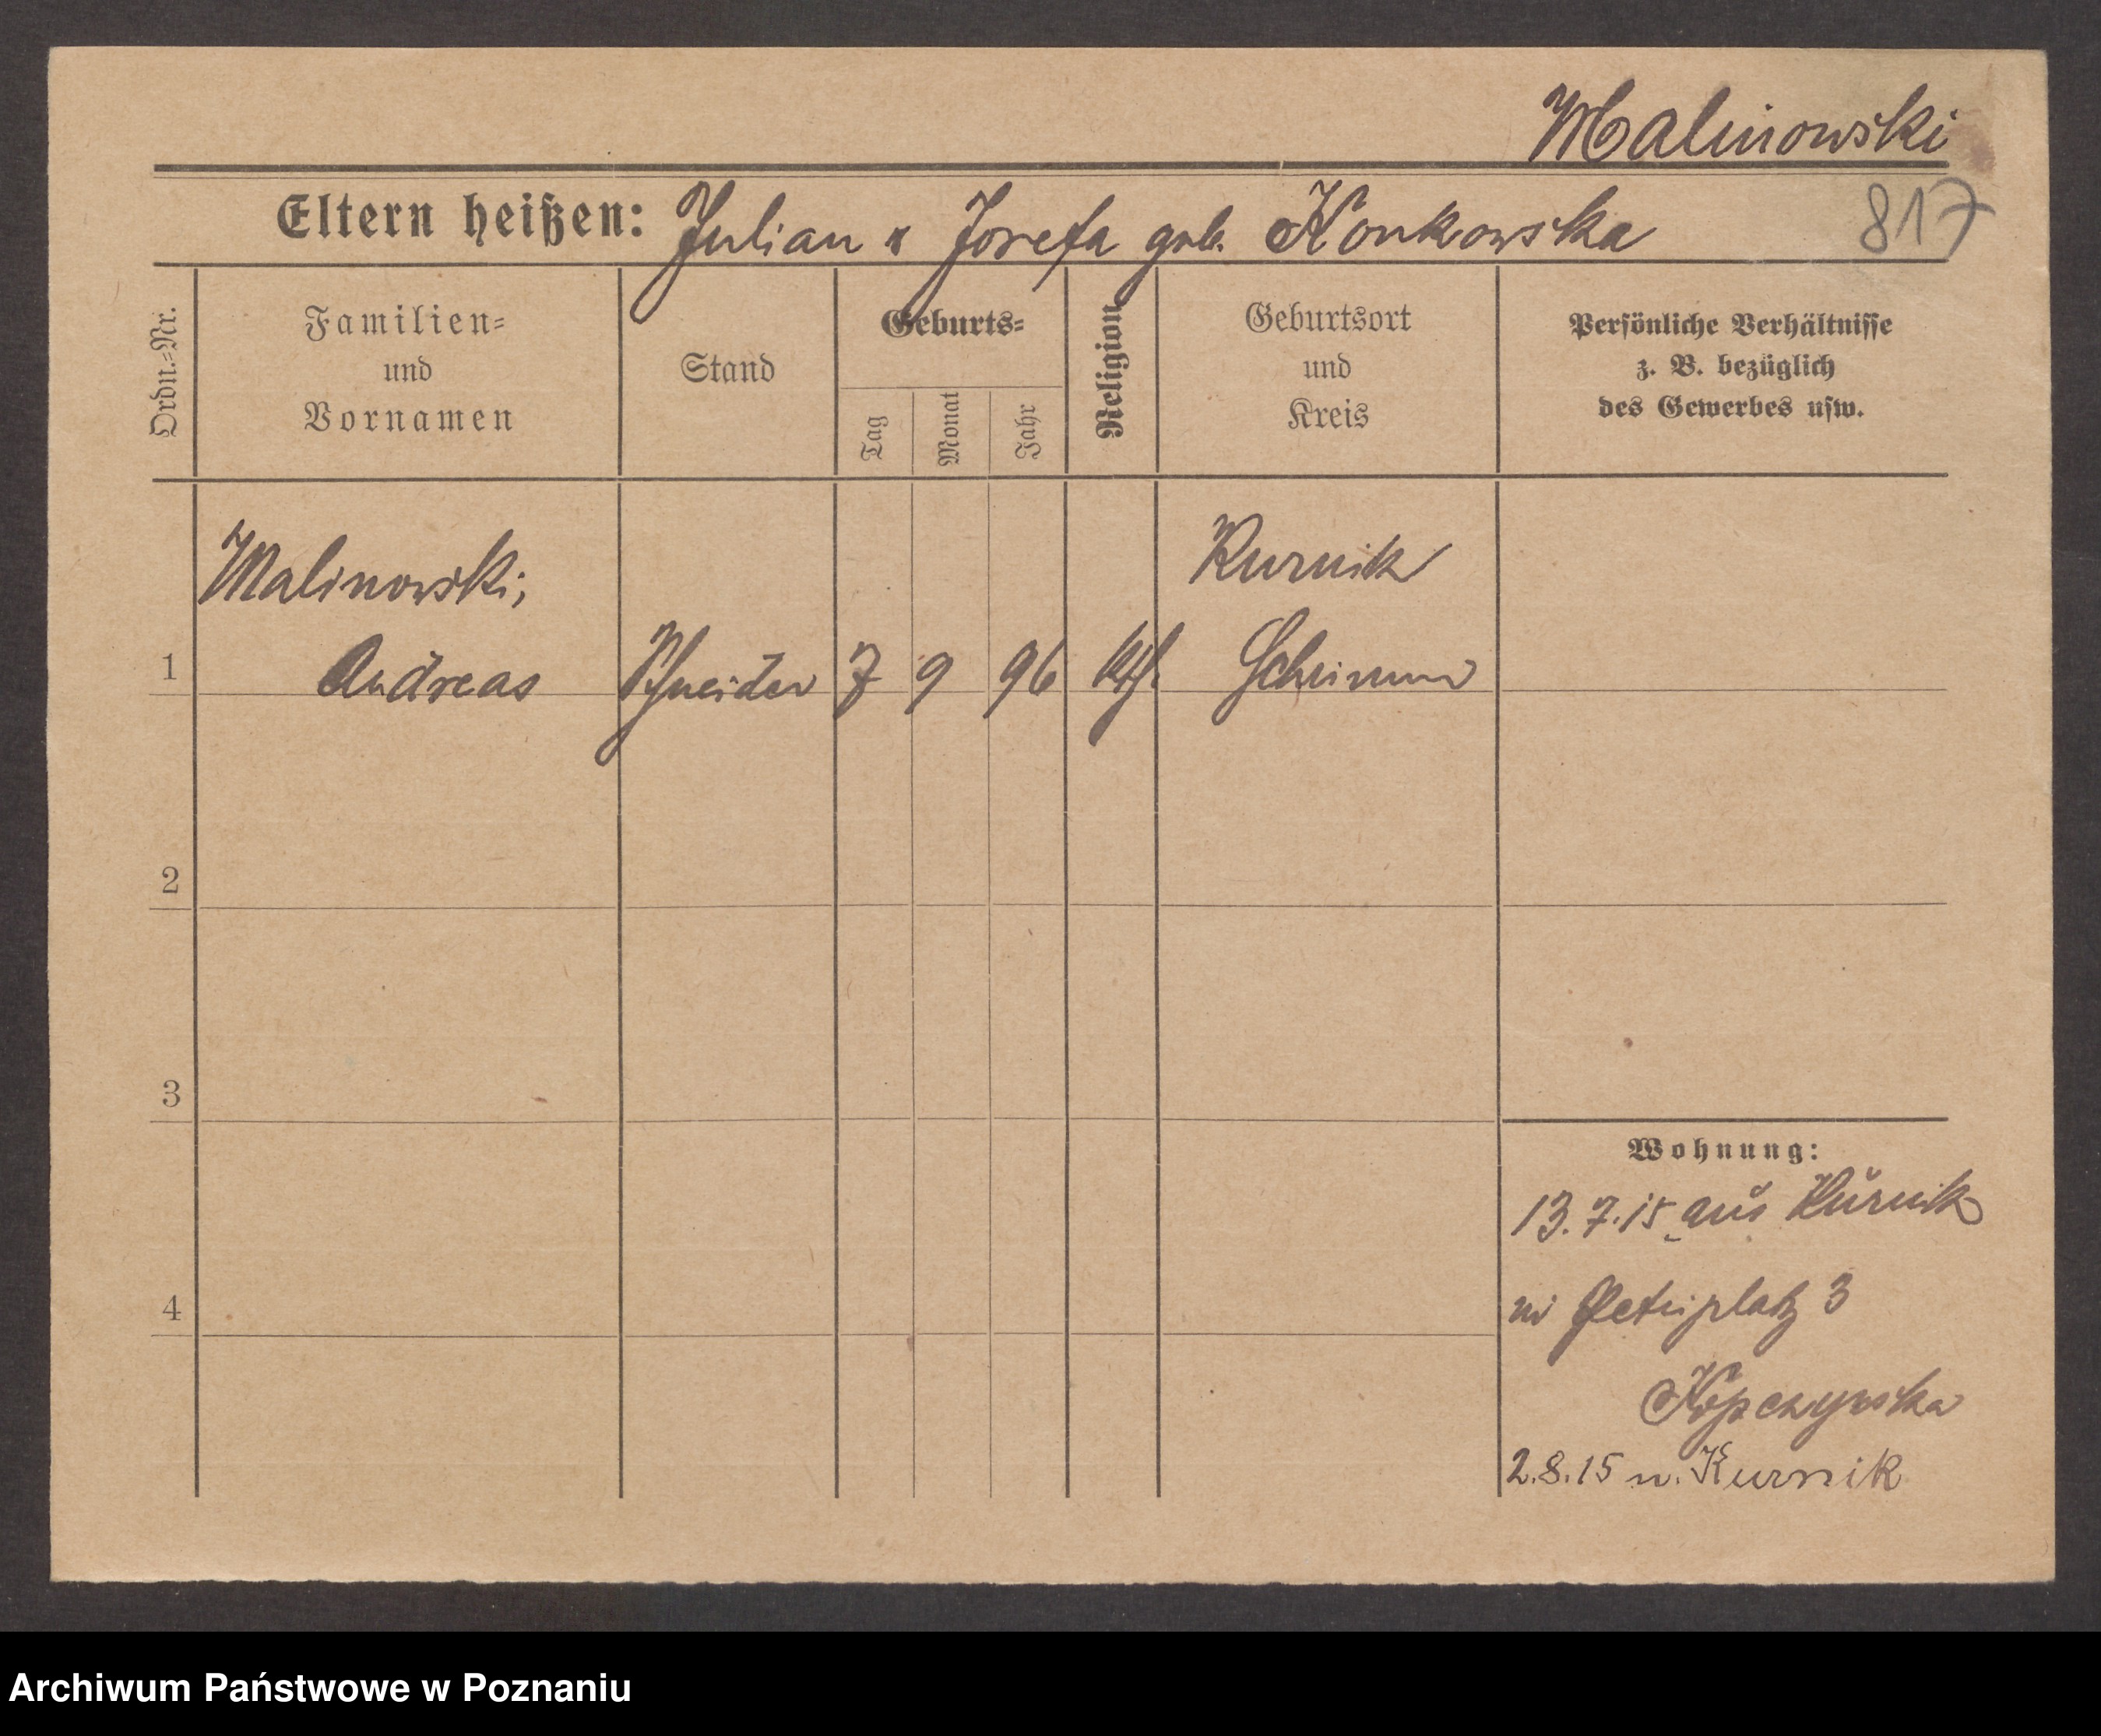 Malinowski
Eltern heißen: Julian u Josefa geb. Konkowska 817
Ordn.=Nr.
Familien=
und
Vornamen
Stand
Geburts=
Tag
Monat
Jahr
Religion
Geburtsort
und
Kreis
Persönliche Verhältnisse
z. B. bezüglich
des Gewerbes usw.
Malinowski,
Kurnik
1 Andreas Schneider 7 9 96 kth. Schrimm
2
3
4
Wohnung:
13.7.15 aus Kurnik
Petriplatz 3
2.8.15 n. Kurnik
Archiwum Państwowe w Poznaniu